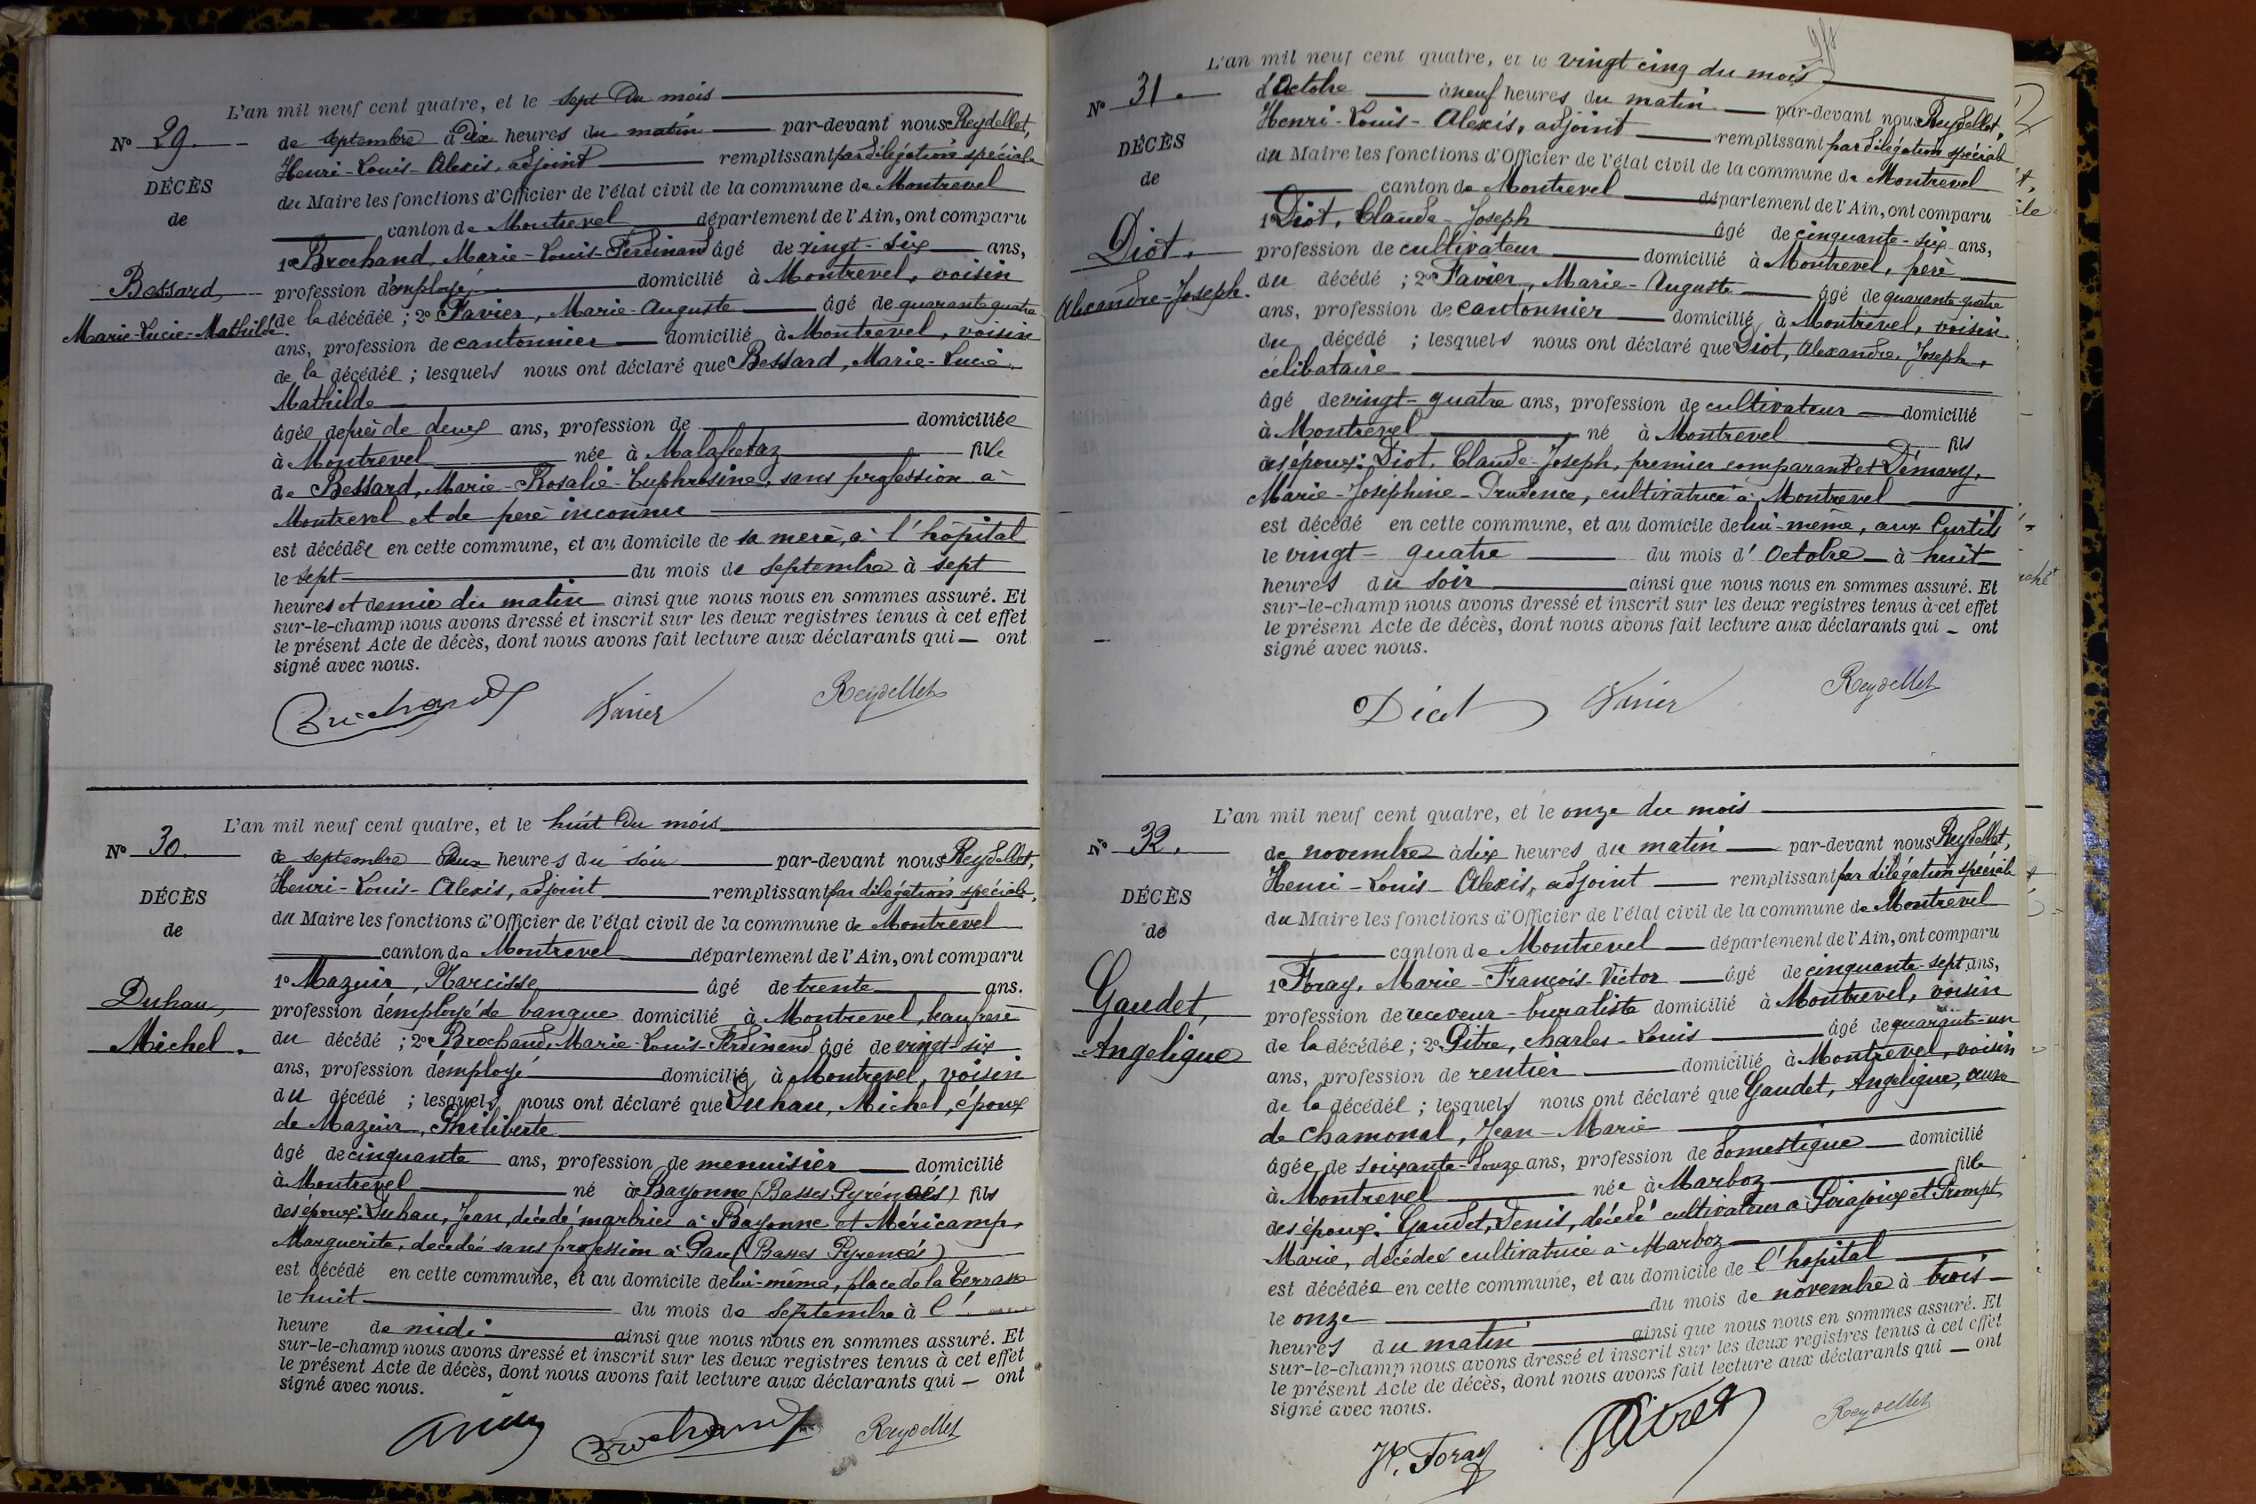 L'an mil neuf cent quatre, et le sept du mois
No 29.
de septembre à dix heures du matin par-devant nous Reydellet,
Henri-Louis-Alexis, adjoint remplissant par délégation spéciale
DÉCÈS
du Maire les fonctions d'Officier de l'état civil de la commune de Montrevel
de
canton de Montrevel département de l'Ain, ont comparu
1o Brochand, Marie-Louis-Ferdinand âgé de vingt-six ans,
Bessard,
profession d'employé, domicilié à Montrevel, voisin
Marie-Lucie-Mathilde
de la décédée ; 2o Favier, Marie-Auguste âgé de quarante quatre
ans, profession de cantonnier domicilié à Montrevel, voisin
de la décédée ; lesquels nous ont déclaré que Bessard, Marie-Lucie,
Mathilde
âgée de près de deux ans, profession de domiciliée
à Montrevel née à Malafretaz fille
de Bessard, Marie-Rosalie-Euphrosine, sans profession à
Montrevel et de père inconnu
est décédée en cette commune, et au domicile de sa mère, à l'hôpital
le sept du mois de septembre à sept
heures et demie du matin ainsi que nous nous en sommes assuré. Et
sur-le-champ nous avons dressé et inscrit sur les deux registres tenus à cet effet
le présent Acte de décès, dont nous avons fait lecture aux déclarants qui — ont
signé avec nous.
Brochand Favier Reydellet
L'an mil neuf cent quatre, et le huit du mois
No 30.
de septembre à deux heures du soir par-devant nous Reydellet,
Henri-Louis-Alexis, adjoint remplissant par délégation spéciale,
DÉCÈS
du Maire les fonctions d'Officier de l'état civil de la commune de Montrevel
de
canton de Montrevel département de l'Ain, ont comparu
1o Mazuir, Narcisse âgé de trente ans.
Duhau,
profession d'employé de banque domicilié à Montrevel, beau frère
Michel.
du décédé ; 2o Brochand, Marie-Louis-Ferdinand âgé de vingt six
ans, profession d'employé domicilié à Montrevel, voisin
du décédé ; lesquels nous ont déclaré que Duhau, Michel, époux
de Mazuir, Philiberte
âgé de cinquante ans, profession de menuisier domicilié
à Montrevel né à Bayonne (Basses Pyrénées) fils
des époux: Duhau, Jean, décédé marbrier à Bayonne et Méricamp,
Marguerite, décédée sans profession à Pau (Basses Pyrénées)
est décédé en cette commune, et au domicile de lui-même, place de la Terrasse
le huit du mois de septembre à l'
heure de midi ainsi que nous nous en sommes assuré. Et
sur-le-champ nous avons dressé et inscrit sur les deux registres tenus à cet effet
le présent Acte de décès, dont nous avons fait lecture aux déclarants qui — ont
signé avec nous.
Brochand Reydellet
L'an mil neuf cent quatre, et le vingt cinq du mois
No 31.
d'octobre à neuf heures du matin par-devant nous Reydellet,
Henri-Louis-Alexis, adjoint remplissant par délégation spéciale
DÉCÈS
du Maire les fonctions d'Officier de l'état civil de la commune de Montrevel
de
canton de Montrevel département de l'Ain, ont comparu
1o Diot, Claude-Joseph âgé de cinquante-six ans,
Diot,
profession de cultivateur domicilié à Montrevel, père
Alexandre-Joseph.
du décédé ; 2o Favier, Marie-Auguste âgé de quarante-quatre
ans, profession de cantonnier domicilié à Montrevel, voisin
du décédé ; lesquels nous ont déclaré que Diot, Alexandre, Joseph,
célibataire
âgé de vingt-quatre ans, profession de cultivateur domicilié
à Montrevel né à Montrevel fils
des époux: Diot, Claude-Joseph, premier comparant et Démary,
Marie-Joséphine-Prudence, cultivatrice à Montrevel
est décédé en cette commune, et au domicile de lui-même, aux Curtils
le vingt-quatre du mois d'octobre à huit
heures du soir ainsi que nous nous en sommes assuré. Et
sur-le-champ nous avons dressé et inscrit sur les deux registres tenus à cet effet
le présent Acte de décès, dont nous avons fait lecture aux déclarants qui — ont
signé avec nous.
Diot Favier Reydellet
L'an mil neuf cent quatre, et le onze du mois
No 32.
de novembre à dix heures du matin par-devant nous Reydellet,
Henri-Louis-Alexis, adjoint remplissant par délégation spéciale
DÉCÈS
du Maire les fonctions d'Officier de l'état civil de la commune de Montrevel
de
canton de Montrevel département de l'Ain, ont comparu
1o Foray, Marie-François-Victor âgé de cinquante-sept ans,
Gaudet,
profession de receveur-buraliste domicilié à Montrevel, voisin
Angélique
de la décédée ; 2o Pitre, Charles-Louis âgé de quarante-un
ans, profession de rentier domicilié à Montrevel, voisin
de la décédée ; lesquels nous ont déclaré que Gaudet, Angélique, veuve
de Chamonal, Jean-Marie
âgée de soixante-douze ans, profession de domestique domicilié
à Montrevel née à Marboz fille
des époux: Gaudet, Denis, décédé cultivateur à Pirajoux et Prompt,
Marie, décédée cultivatrice à Marboz
est décédée en cette commune, et au domicile de l'hôpital
le onze du mois de novembre à trois
heures du matin ainsi que nous nous en sommes assuré. Et
sur-le-champ nous avons dressé et inscrit sur les deux registres tenus à cet effet
le présent Acte de décès, dont nous avons fait lecture aux déclarants qui — ont
signé avec nous.
Foray Pitre Reydellet